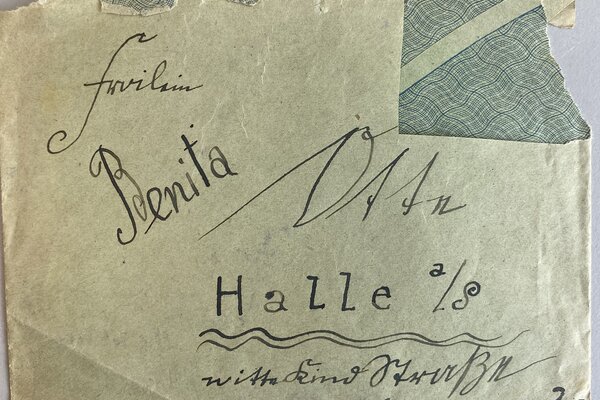 Froilein
Benita Otte
Halle a/S
wittekind Straße